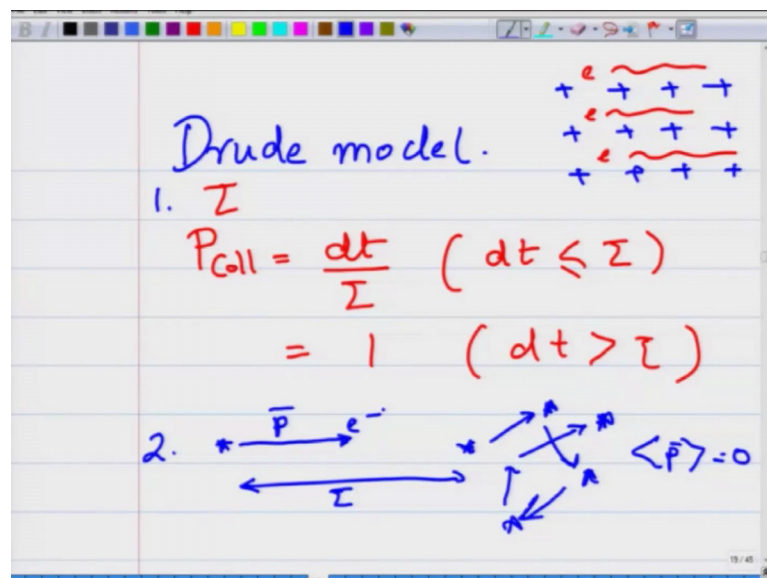 e
+ + + +
e
+ + + +
e
+ + + +
Drude model.
1. τ
P_Coll = dt/τ ( dt ≤ τ )
= 1 ( dt > τ )
2. p̄ e⁻
τ
<p̄> = 0
19 / 45